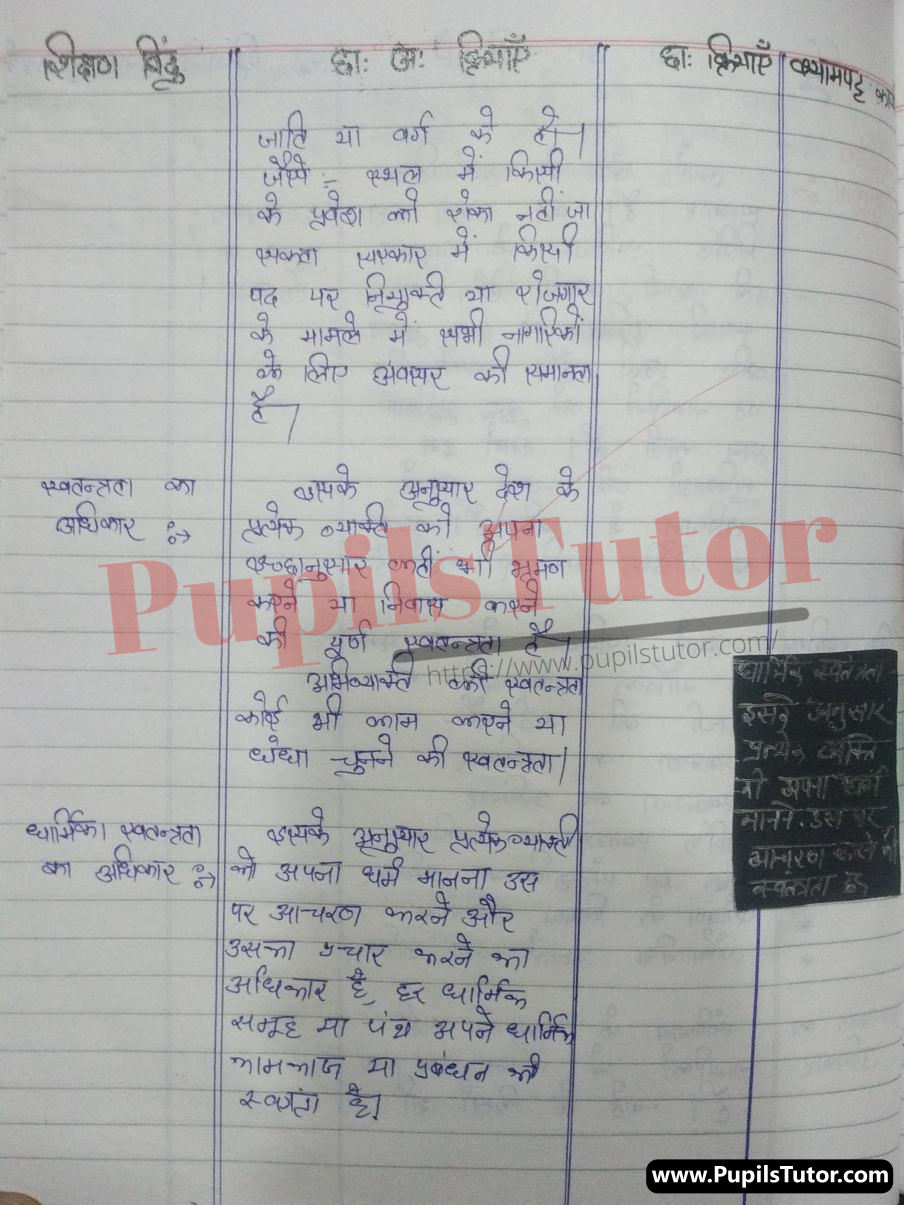 शिक्षण बिंदु
छा: अ: क्रियाएँ
छा: क्रियाएँ
श्यामपट्ट कार्य
जाति या वर्ग के हो।
जैसे :- स्थल में किसी
के प्रवेश को रोका नहीं जा
सकता सरकार में किसी
पद पर नियुक्ति या रोजगार
के मामले में सभी नागरिकों
के लिए अवसर की समानता
है।
स्वतन्त्रता का
अधिकार :→
इसके अनुसार देश के
प्रत्येक व्यक्ति को अपना
इच्छानुसार कहीं भी भ्रमण
करने या निवास करने
की पूर्ण स्वतन्त्रता है।
अभिव्यक्ति की स्वतन्त्रता
कोई भी काम करने या
धंधा चुनने की स्वतन्त्रता।
धार्मिक स्वतन्त्रता
का अधिकार :→
इसके अनुसार प्रत्येक व्यक्ति
को अपना धर्म मानना उस
पर आचरण करने और
उसका प्रचार करने का
अधिकार है, हर धार्मिक
समूह या पंथ अपने धार्मिक
कामकाज या प्रबंधन की
स्वतंता है।
धार्मिक स्वतंत्रता
इसके अनुसार
प्रत्येक व्यक्ति
को अपना धर्म
मानने. उस पर
आचरण करने की
स्वतंत्रता है
PupilsTutor
https://www.pupilstutor.com/
www.PupilsTutor.com